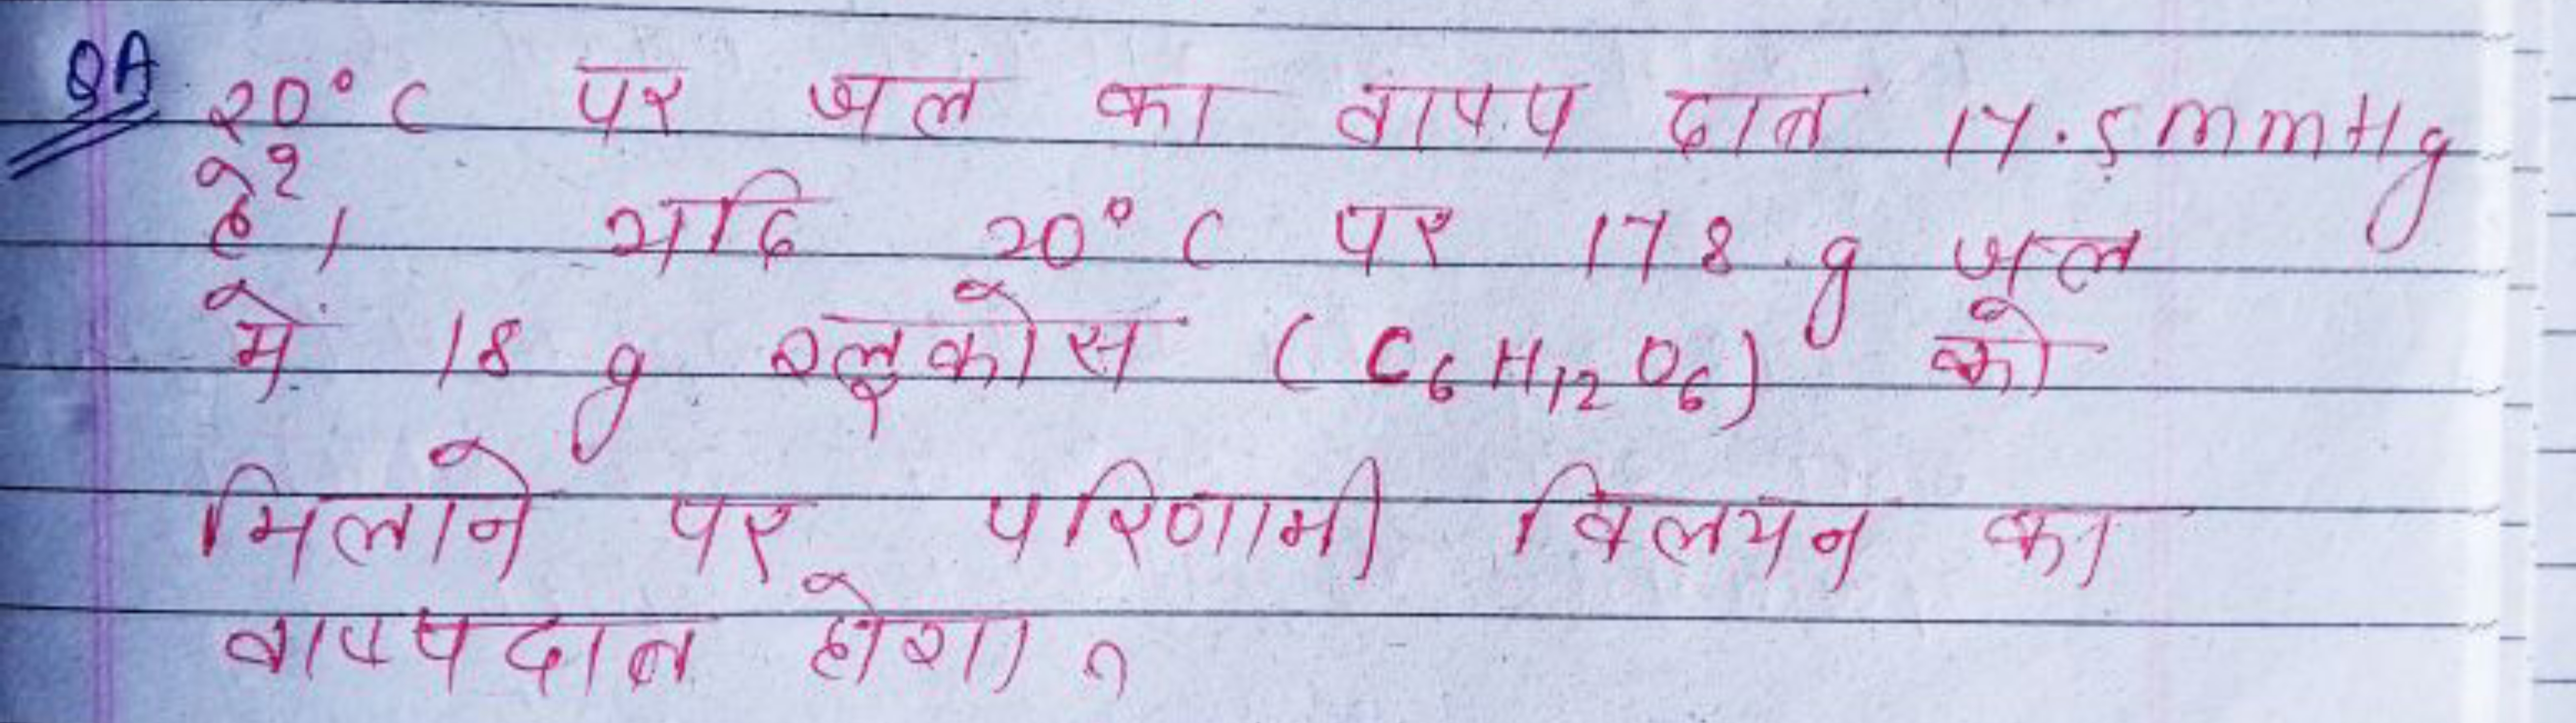 QA 20°C पर जल का वाष्प दाब 17.5 mmHg
है। यदि 20°C पर 178 g जल
में 18 g ग्लूकोस (C₆H₁₂O₆) को
मिलाने पर परिणामी विलयन का
वाष्पदाब होगा ?